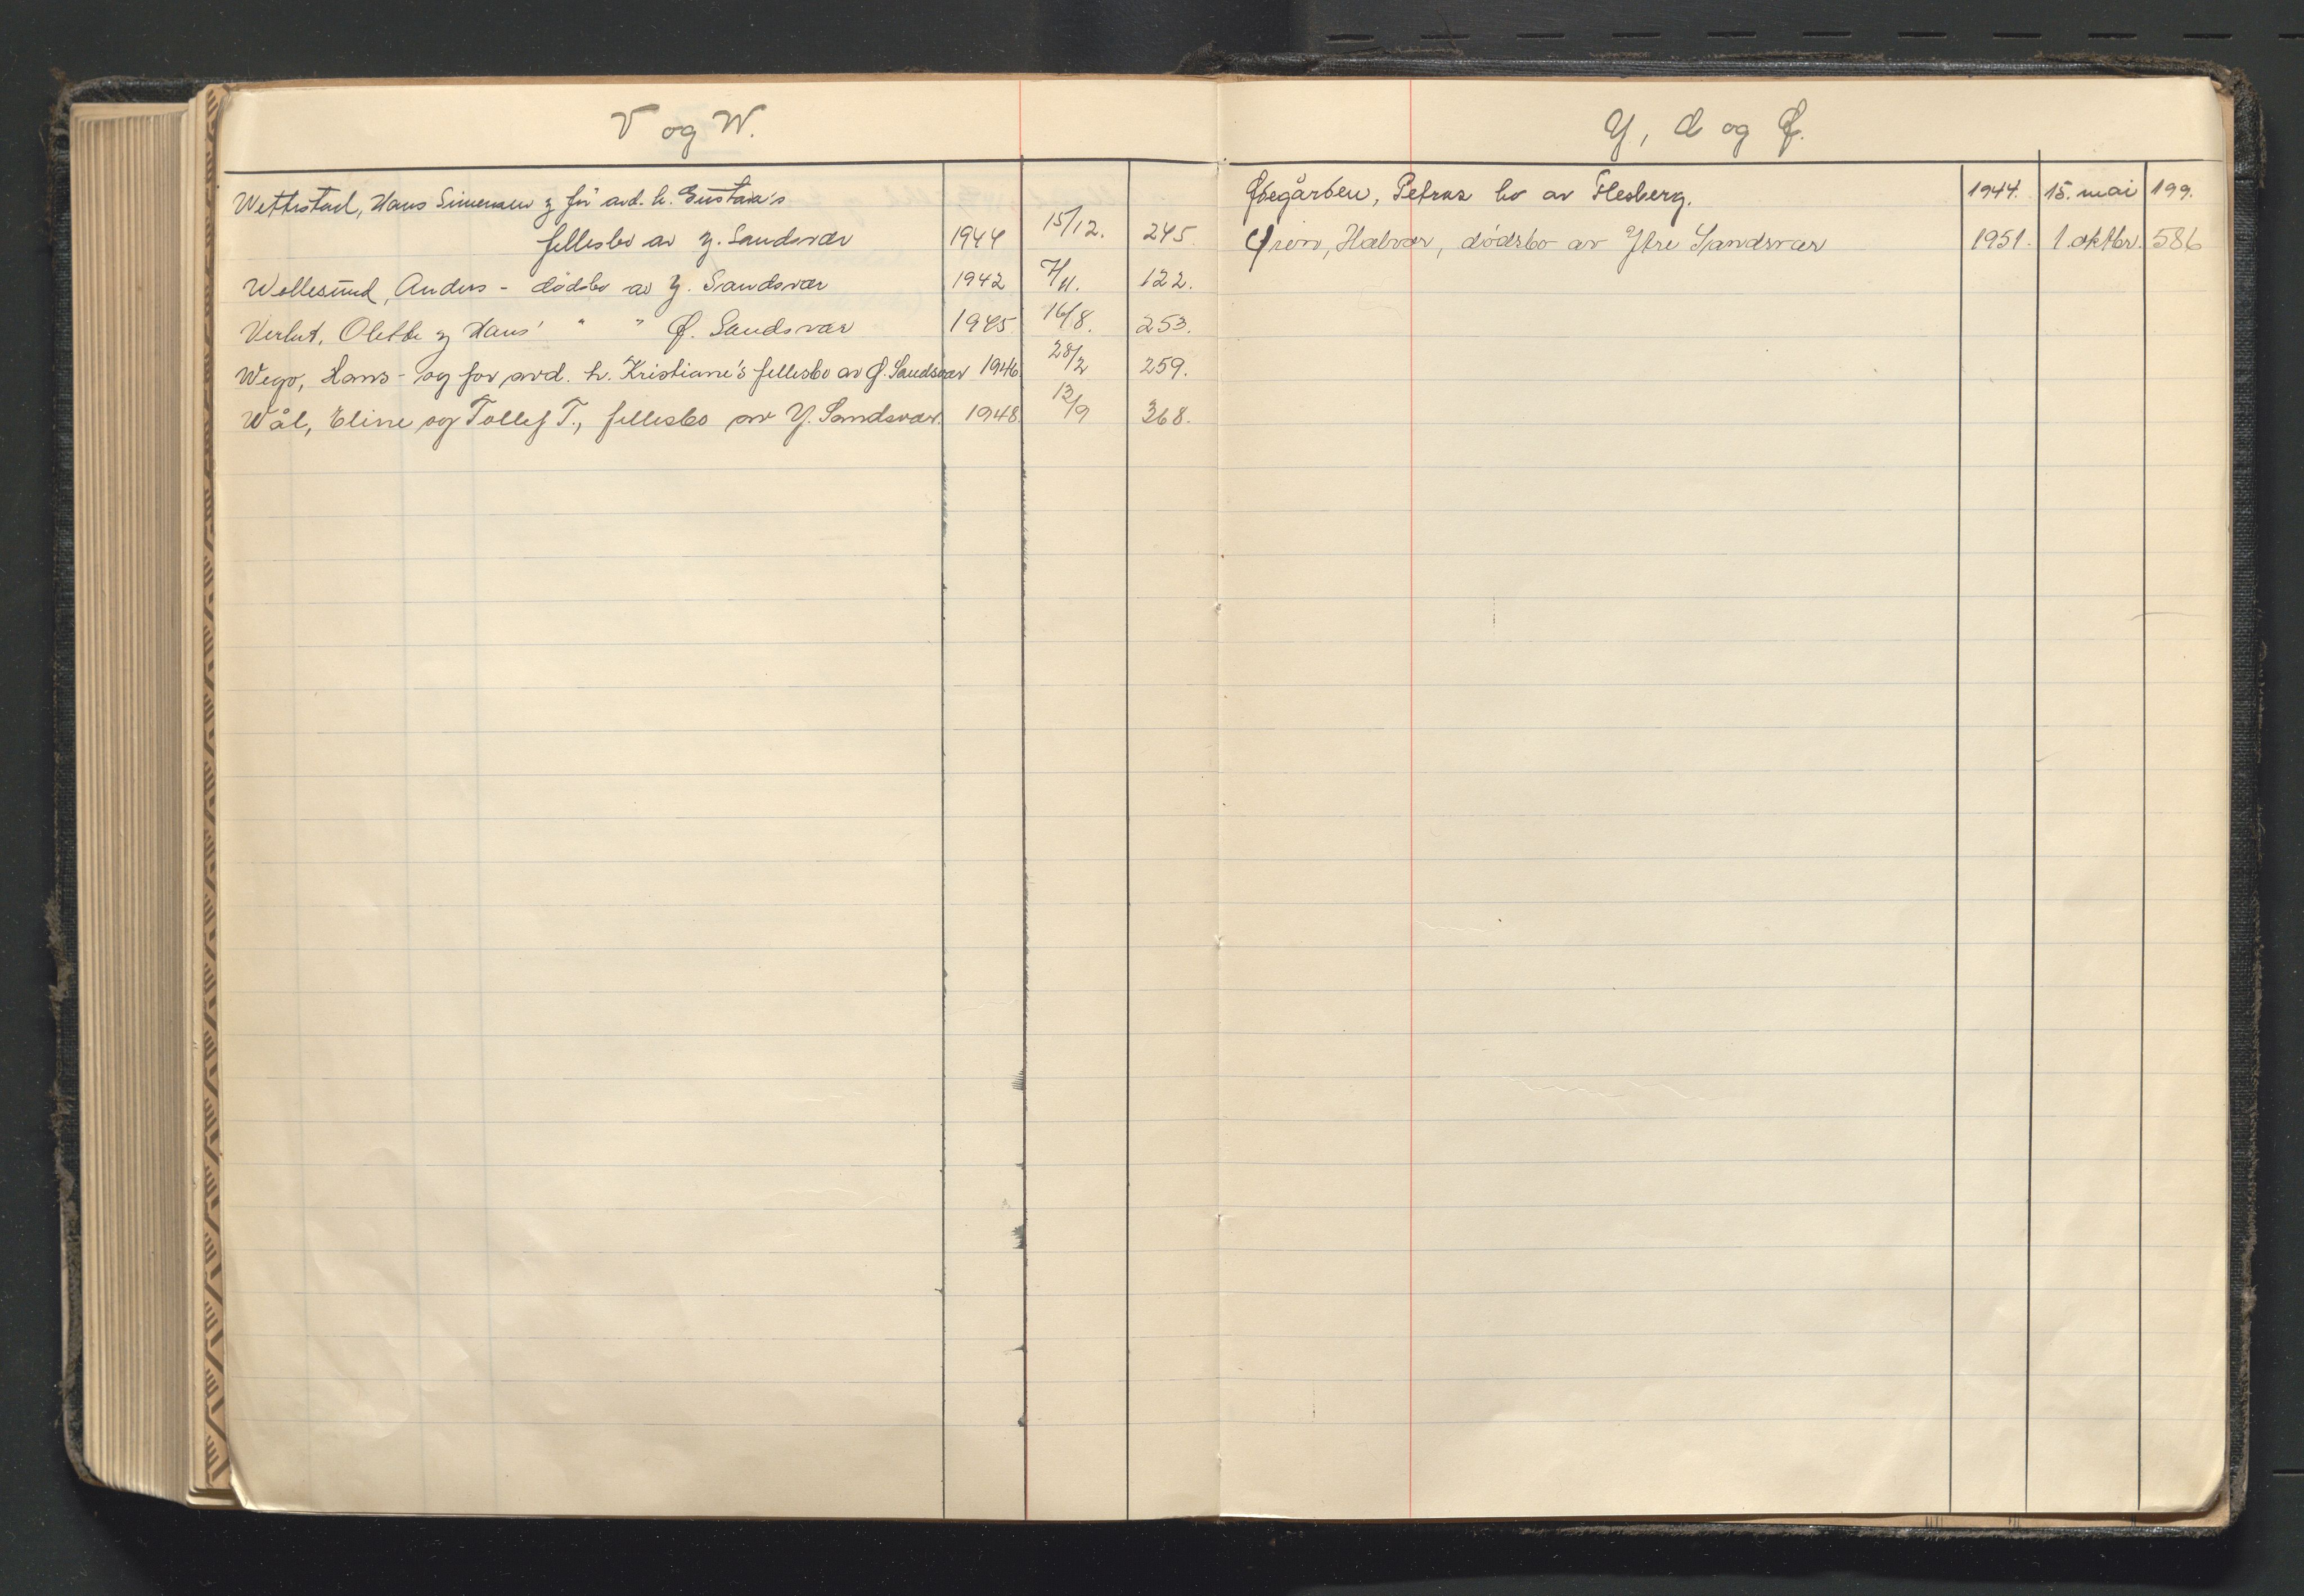 V og W.
Wettestad, Hans Simensen og for avd. h. Gustava's
fellesbo av Y. Sandsvær 1944 15/12. 245.
Wellesund, Anders - dødsbo av Y. Sandsvær 1942 7/11. 122.
Verlut, Olette og Hans' " " Ø. Sandsvær 1945 16/8. 253.
Wego, Hans - og for avd. h. Kristiane's fellesbo av Ø. Sandsvær 1946 28/2 259.
Wål, Eline og Tollef T., fellesbo av Y. Sandsvær. 1948 13/9 368.
Y, Æ og Ø.
Øvegården, Petras bo av Flesberg. 1944. 15. mai 199.
Halvor, dødsbo av Ytre Sandsvær 1951. 1. oktbr. 586